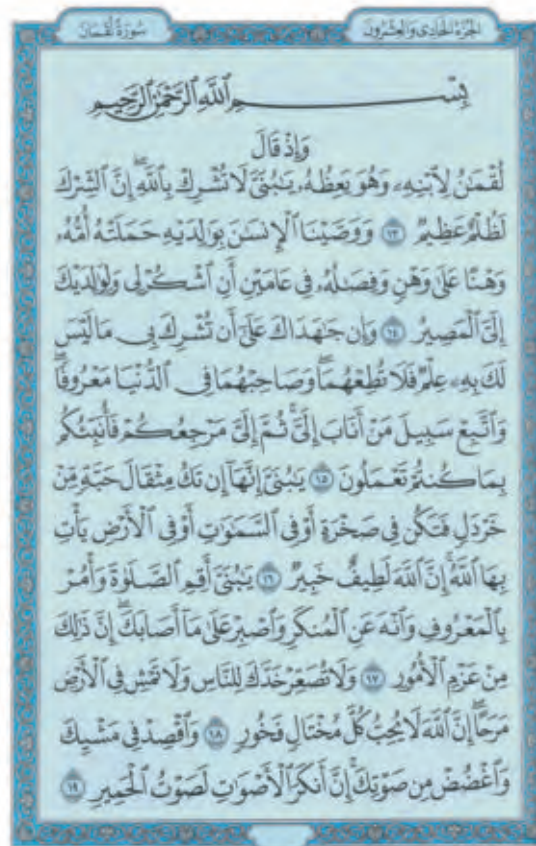 الجزء الحادي والعشرون
سورة لقمان
بِسْمِ اللَّهِ الرَّحْمَٰنِ الرَّحِيمِ
وَإِذْ قَالَ
لُقْمَٰنُ لِٱبْنِهِۦ وَهُوَ يَعِظُهُۥ يَٰبُنَىَّ لَا تُشْرِكْ بِٱللَّهِ ۖ إِنَّ ٱلشِّرْكَ
لَظُلْمٌ عَظِيمٌ ١٣ وَوَصَّيْنَا ٱلْإِنسَٰنَ بِوَٰلِدَيْهِ حَمَلَتْهُ أُمُّهُۥ
وَهْنًا عَلَىٰ وَهْنٍ وَفِصَٰلُهُۥ فِى عَامَيْنِ أَنِ ٱشْكُرْ لِى وَلِوَٰلِدَيْكَ
إِلَىَّ ٱلْمَصِيرُ ١٤ وَإِن جَٰهَدَاكَ عَلَىٰٓ أَن تُشْرِكَ بِى مَا لَيْسَ
لَكَ بِهِۦ عِلْمٌ فَلَا تُطِعْهُمَا ۖ وَصَاحِبْهُمَا فِى ٱلدُّنْيَا مَعْرُوفًا ۖ
وَٱتَّبِعْ سَبِيلَ مَنْ أَنَابَ إِلَىَّ ۚ ثُمَّ إِلَىَّ مَرْجِعُكُمْ فَأُنَبِّئُكُم
بِمَا كُنتُمْ تَعْمَلُونَ ١٥ يَٰبُنَىَّ إِنَّهَآ إِن تَكُ مِثْقَالَ حَبَّةٍ مِّنْ
خَرْدَلٍ فَتَكُن فِى صَخْرَةٍ أَوْ فِى ٱلسَّمَٰوَٰتِ أَوْ فِى ٱلْأَرْضِ يَأْتِ
بِهَا ٱللَّهُ ۚ إِنَّ ٱللَّهَ لَطِيفٌ خَبِيرٌ ١٦ يَٰبُنَىَّ أَقِمِ ٱلصَّلَوٰةَ وَأْمُرْ
بِٱلْمَعْرُوفِ وَٱنْهَ عَنِ ٱلْمُنكَرِ وَٱصْبِرْ عَلَىٰ مَآ أَصَابَكَ ۖ إِنَّ ذَٰلِكَ
مِنْ عَزْمِ ٱلْأُمُورِ ١٧ وَلَا تُصَعِّرْ خَدَّكَ لِلنَّاسِ وَلَا تَمْشِ فِى ٱلْأَرْضِ
مَرَحًا ۖ إِنَّ ٱللَّهَ لَا يُحِبُّ كُلَّ مُخْتَالٍ فَخُورٍ ١٨ وَٱقْصِدْ فِى مَشْيِكَ
وَٱغْضُضْ مِن صَوْتِكَ ۚ إِنَّ أَنكَرَ ٱلْأَصْوَٰتِ لَصَوْتُ ٱلْحَمِيرِ ١٩